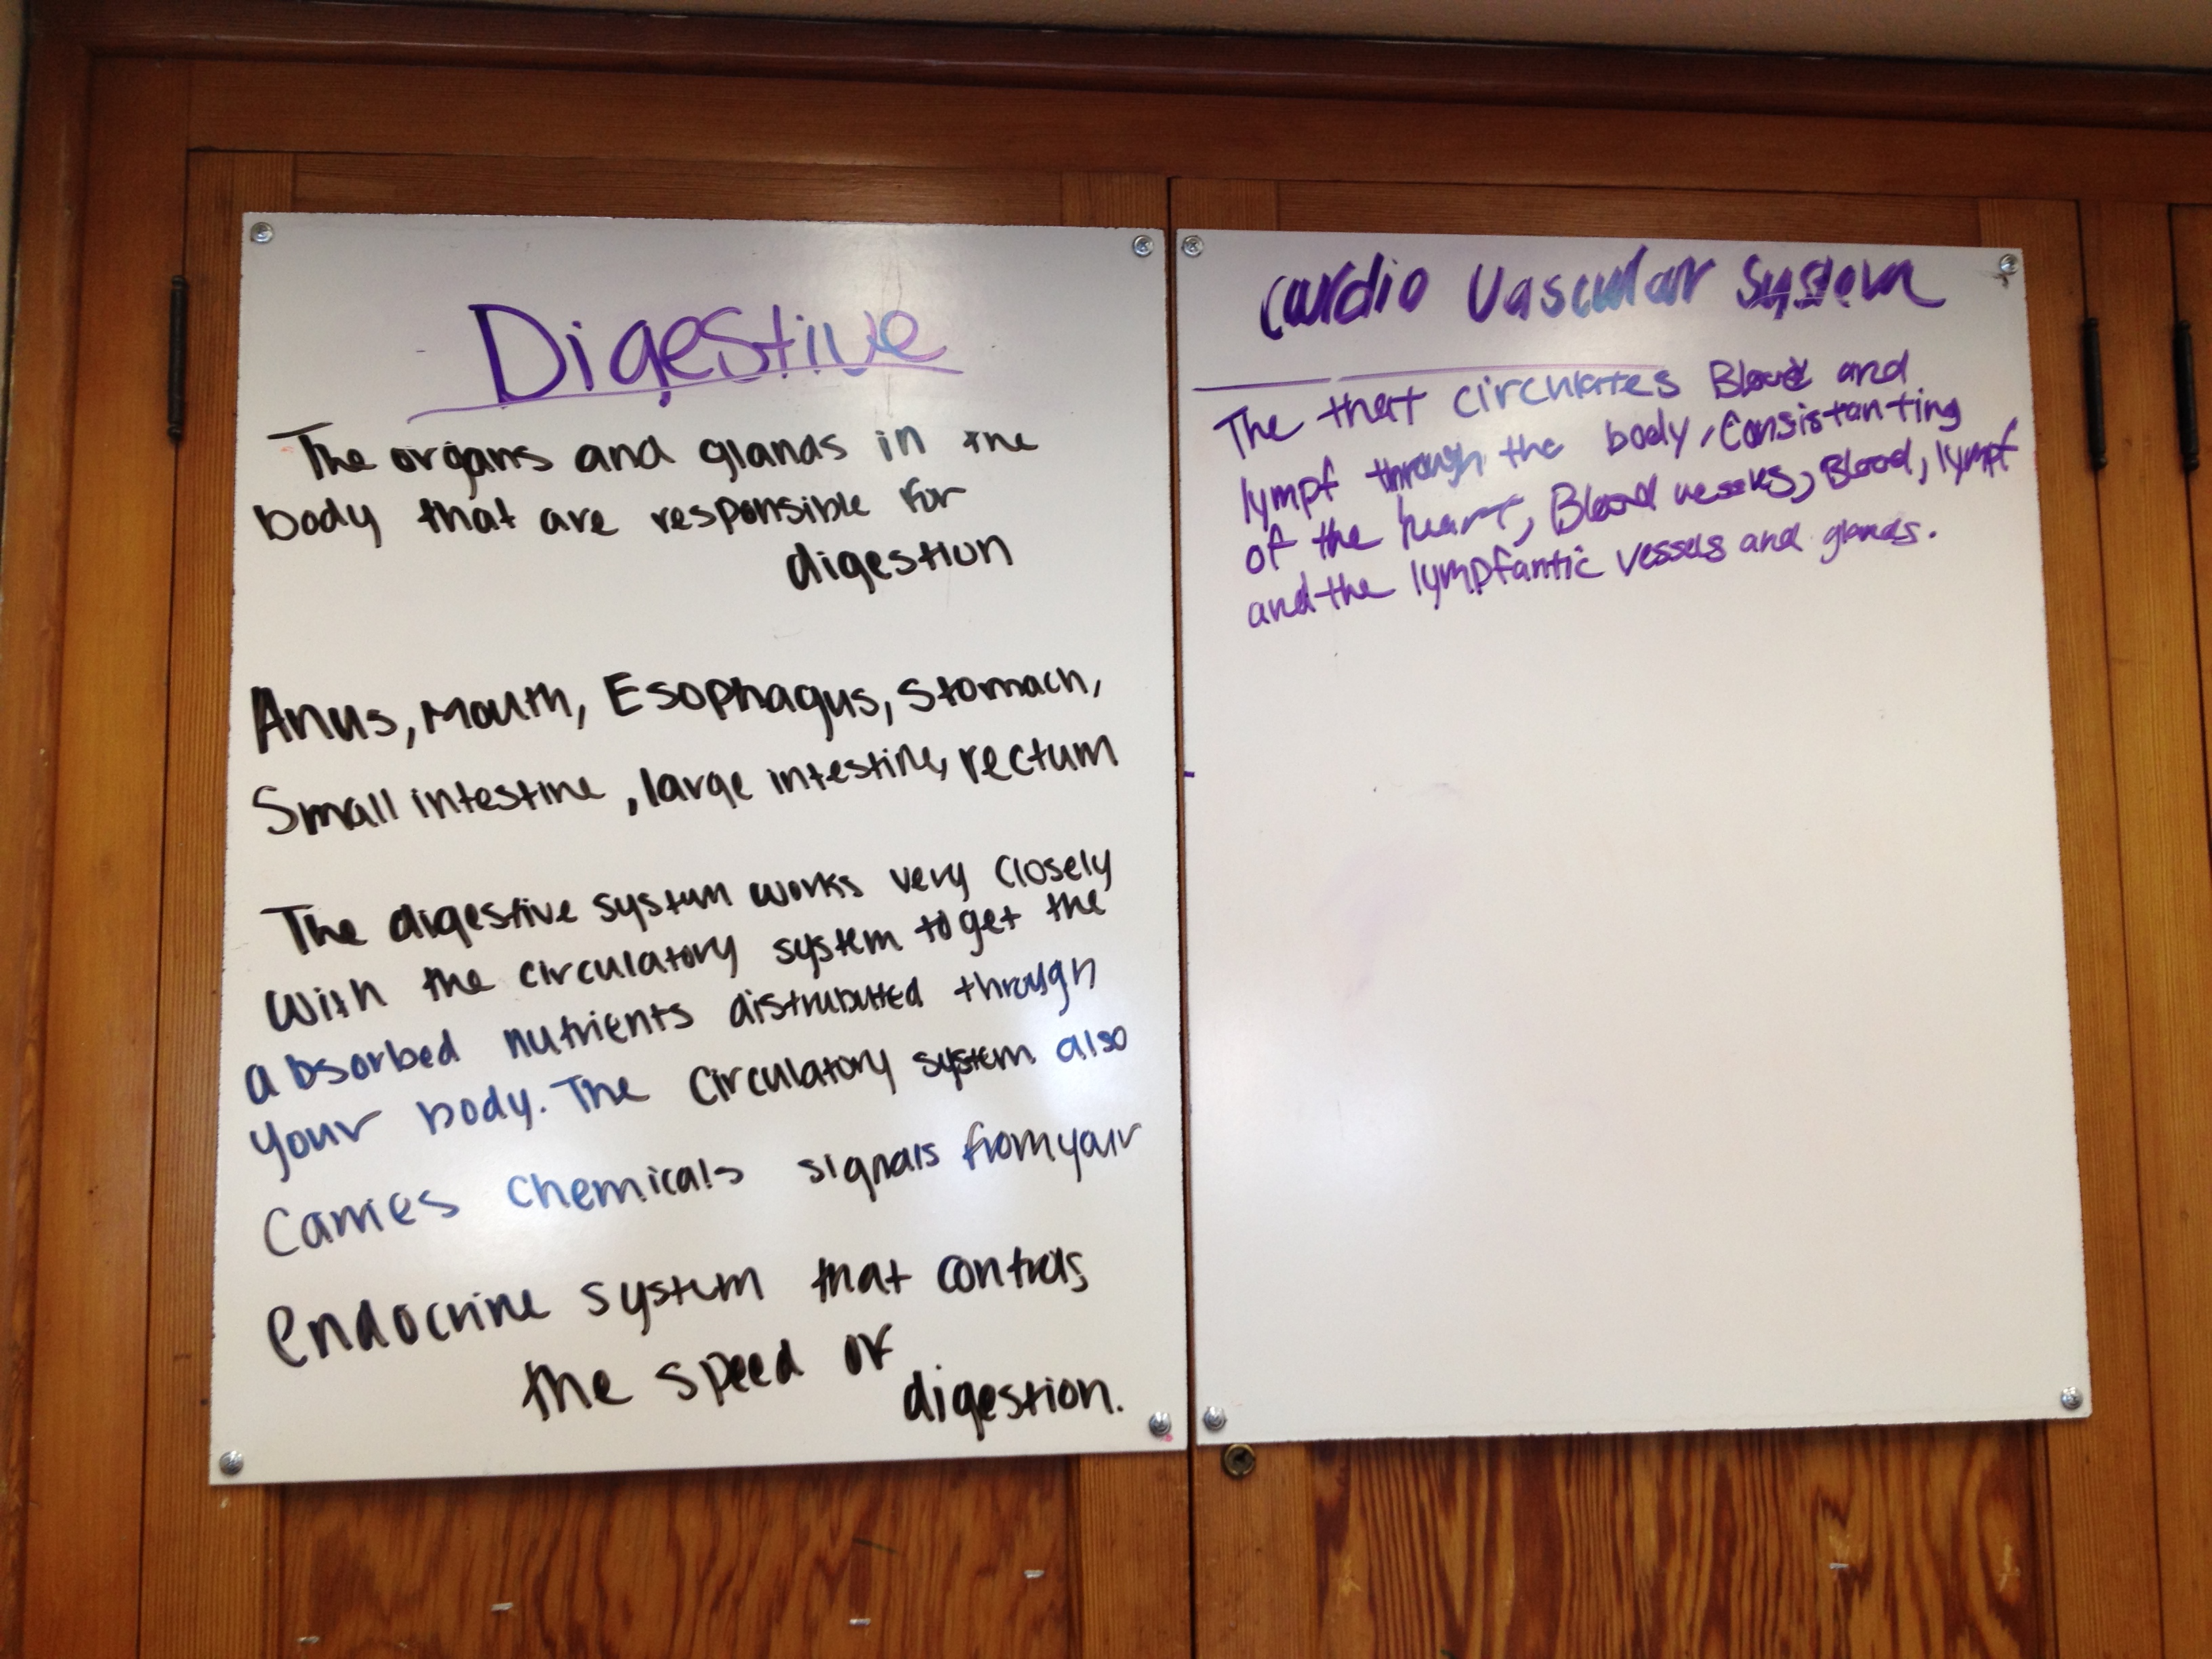 Digestive
The organs and glands in the
body that are responsible for
digestion
Anus, Mouth, Esophagus, Stomach,
Small intestine, large intestine, rectum
The digestive system works very closely
with the circulatory system to get the
absorbed nutrients distrubuted through
your body. The circulatory system also
Carries chemicals signals from your
endocrine system that controls
the speed of
digestion.
Cardio Vascular System
The that circulates Blood and
lympf through the body, Consistanting
of the heart, Blood vessels, Blood, lympf
and the lympfantic vessels and glands.